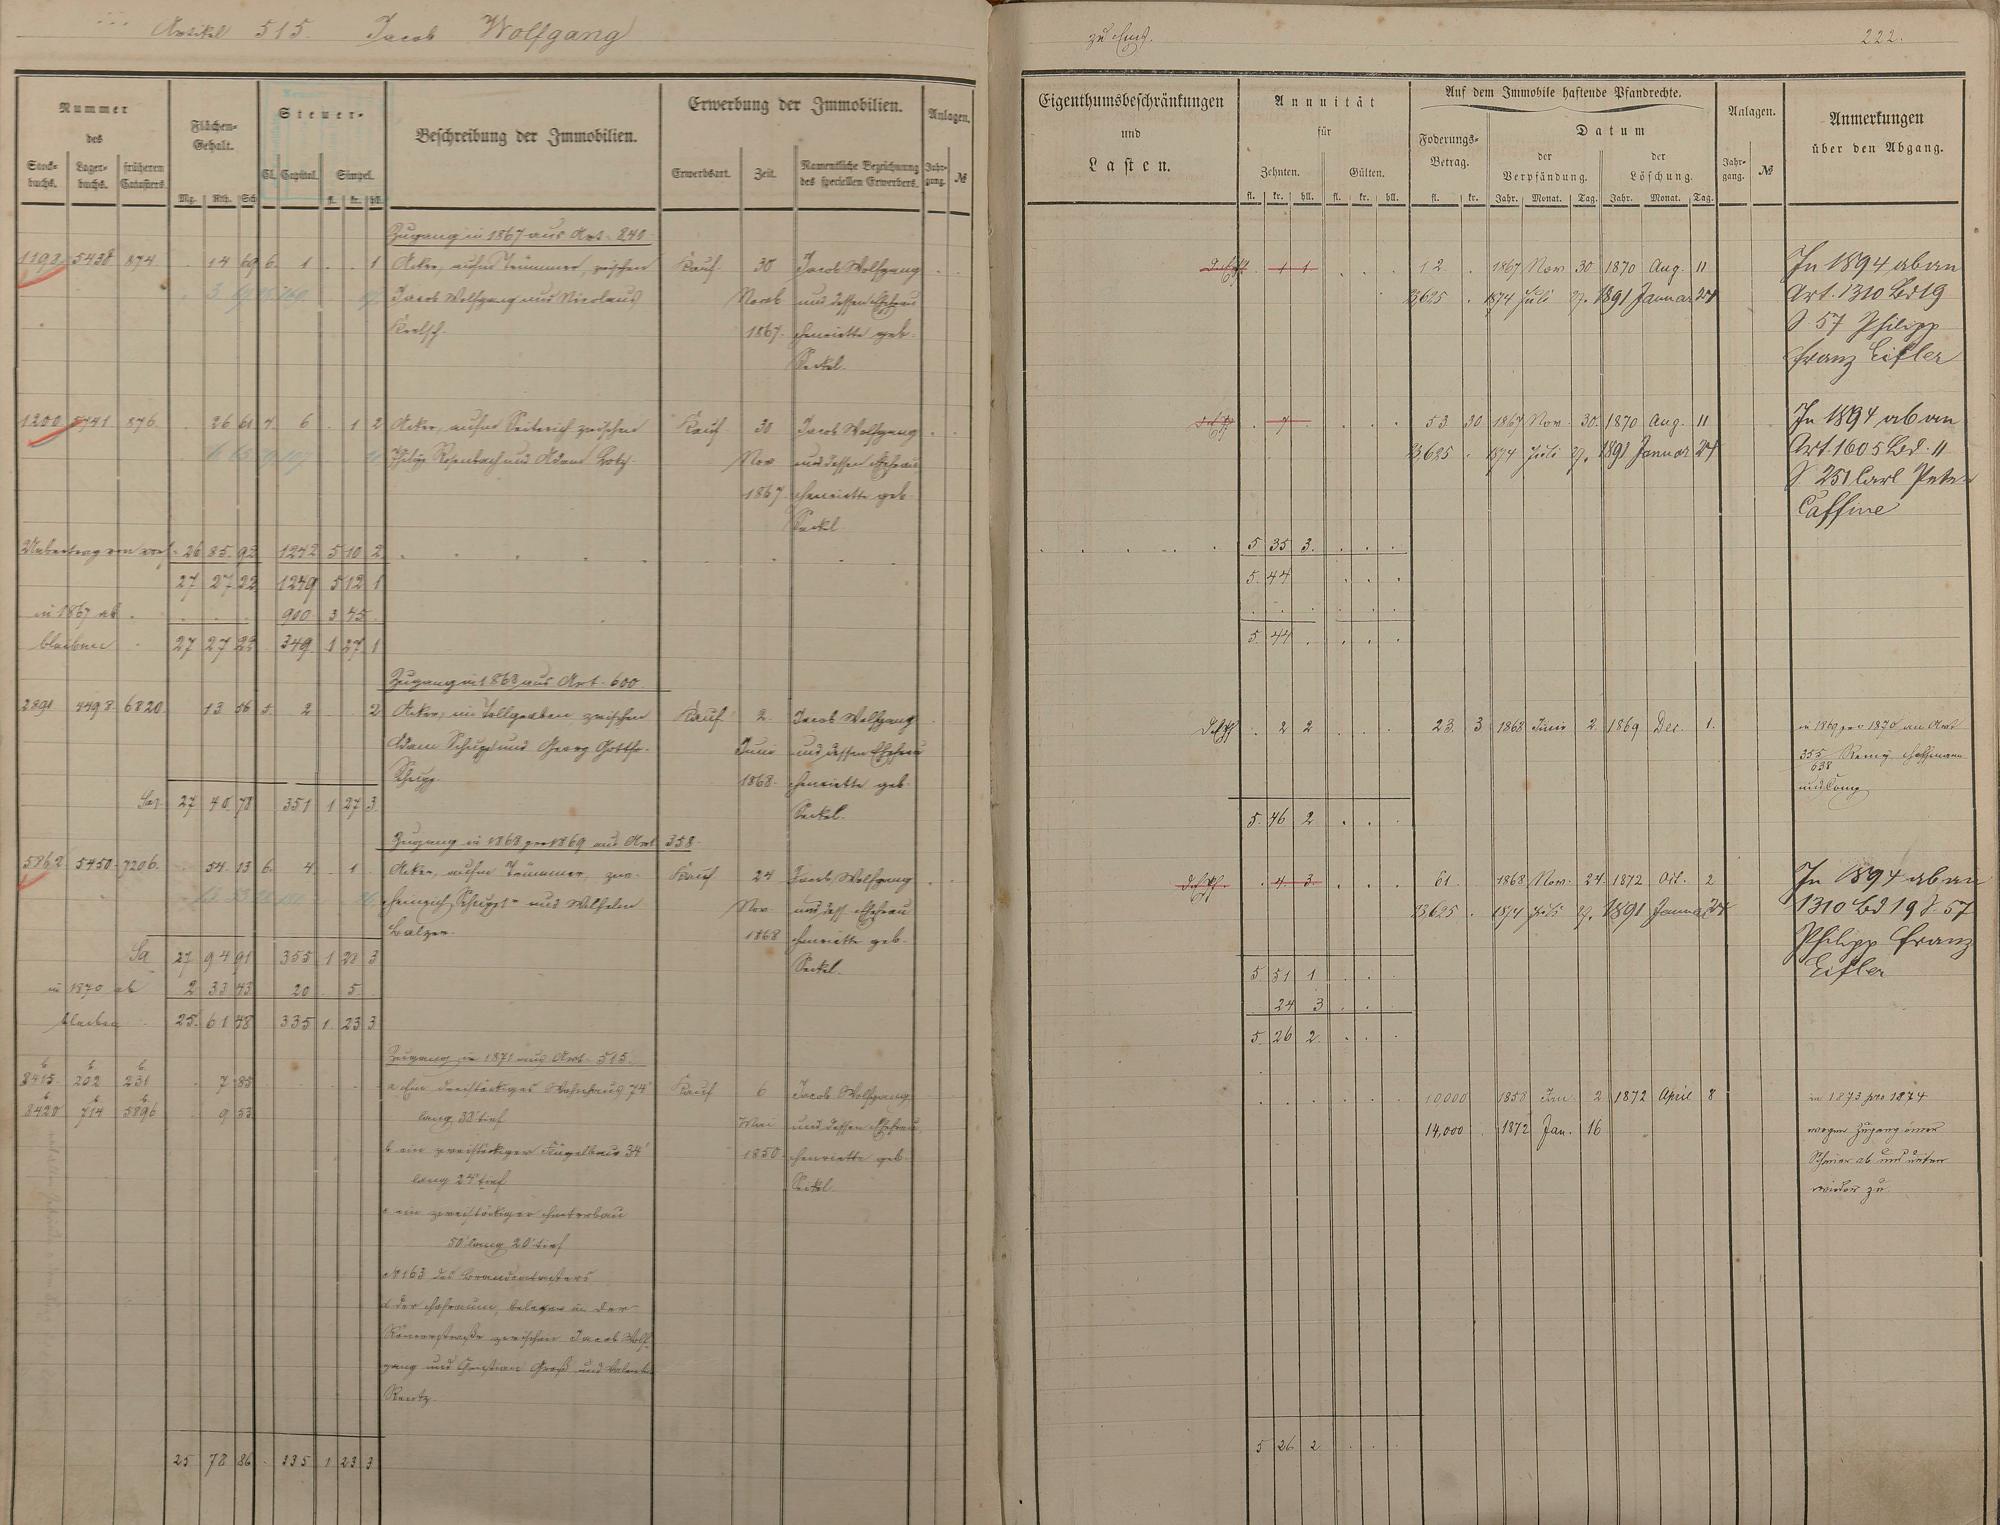 Artikel 515. Jacob Wolfgang
Nummer
des
Stock-
buchs.
Lager-
buchs.
früheren
Catasters.
Flächen-
Gehalt.
Mg. Rth. Sch.
Steuer-
Cl. Capital. Simpel.
fl. kr. hll.
Beschreibung der Immobilien.
Erwerbung der Immobilien.
Erwerbsart. Zeit.
Namentliche Bezeichnung
des speciellen Erwerbers.
Anlagen.
Jahr-
gang. №
Zugang in 1867 aus Art. 240
1198. 5438 874 . 14 69 6. 1 . . 1 Acker, aufm Trümmer, zwischen Kauf. 30 Jacob Wolfgang
Jacob Wolfgang und Nicolaus Novb und dessen Ehefrau
1867. Henriette geb.
Seckel.
1200 5741 876 . 26 61 7. 6 . 1 2 Acker, aufm zwischen Kauf 30 Jacob Wolfgang
Philipp Rosenbach und Adam Nov und dessen Ehefrau
1867 Henriette geb.
Seckel
Uebertrag von vorst. 26 85 92 1242 5 10 2
27 27 22 1249 5 12 1
in 1867 ab 900 3 45
bleiben 27 27 22 349 1 27 1
Zugang in 1868 aus Art. 600
2891 4498 6820 13 56 5. 2 . . 2 Acker, im Tollgraben zwischen Kauf 2. Jacob Wolfgang
Adam Schupp und Georg Gottfr. Juni und dessen Ehefrau
Schupp. 1868. Henriette geb.
Sa. 27 40 78 351 1 27 3 Seckel.
Zugang in 1868 pro 1869 aus Art. 358
5862 5450 7206. . 54 13 6. 4 . 1 . Acker, aufm Trümmer, zw. Kauf 24 Jacob Wolfgang
Heinrich Schupp und Wilhelm Nov und dess. Ehefrau
Balzer. 1868 Henriette geb.
Sa 27 94 91 355 1 28 3 Seckel.
in 1870 ab 2 33 43 20 5
bleiben 25 61 48 335 1 23 3
Zugang in 1871 aus Art. 515.
8415 202 231 . 7 85 a Ein dreistöckiges Wohnhaus 74' Kauf 6 Jacob Wolfgang
8420 714 5896 . 9 53 lang 38' tief Mai und dessen Ehefrau,
b ein zweistöckiger Flügelbau 34' 1850 Henriette geb.
lang 24' tief Seckel
c ein zweistöckiger Hinterbau
50' lang 20' tief
№ 163 des Brandcatasters
d der Hofraum, belegen in der
Römerstraße zwischen Jacob Wolf-
gang und Christian Groß und Valentin
25 78 86 335 1 23 3
zu Ems.
222.
Eigenthumsbeschränkungen
und
Lasten.
Annuität
für
Zehnten. Gülten.
fl. kr. hll. fl. kr. hll.
Auf dem Immobile haftende Pfandrechte.
Foderungs-
Betrag.
fl. kr.
Datum
der
Verpfändung.
der
Löschung.
Jahr. Monat. Tag. Jahr. Monat. Tag.
Anlagen.
Jahr-
gang. №
Anmerkungen
über den Abgang.
1 1 12 . 1867 Nov 30 1870 Aug. 11 In 1894 ab an
23,625 . 1874 Juli 27. 1891 Januar 24 Art. 1310 Bd 19
S 57 Philipp
Franz Eifler
7 53 30 1867 Nov. 30. 1870 Aug. 11 In 1894 ab an
23,625 . 1874 Juli 27. 1891 Januar 24 Art. 1605 Bd. 11
S 251 Carl Peter
Caffine
5 35 3.
5. 44
5. 44
2 2 23. 3 1868 Juni 2. 1869 Dec. 1. in 1869 pro 1870 an Art
355 Remy Hoffmann
638
und Comp
5. 46 2
4 3. 61 . 1868 Nov. 24. 1872 Oct. 2 In 1894 ab an
23,625 . 1874 Juli 27. 1891 Januar 24 1310 Bd 19 S. 57
Philipp Franz
Eifler
5 51 1
24 3
5 26 2
10,000 1858 Jan. 2 1872 April 8 in 1873 pro 1874
14,000 1872 Jan. 16 wegen Zugang einer
Scheuer ab und unten
wieder zu
5 26 2